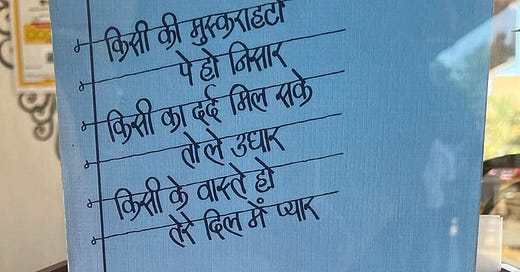 किसी की मुस्कराहटों
पे हो निसार
किसी का दर्द मिल सके
तो ले उधार
किसी के वास्ते हो
तेरे दिल में प्यार